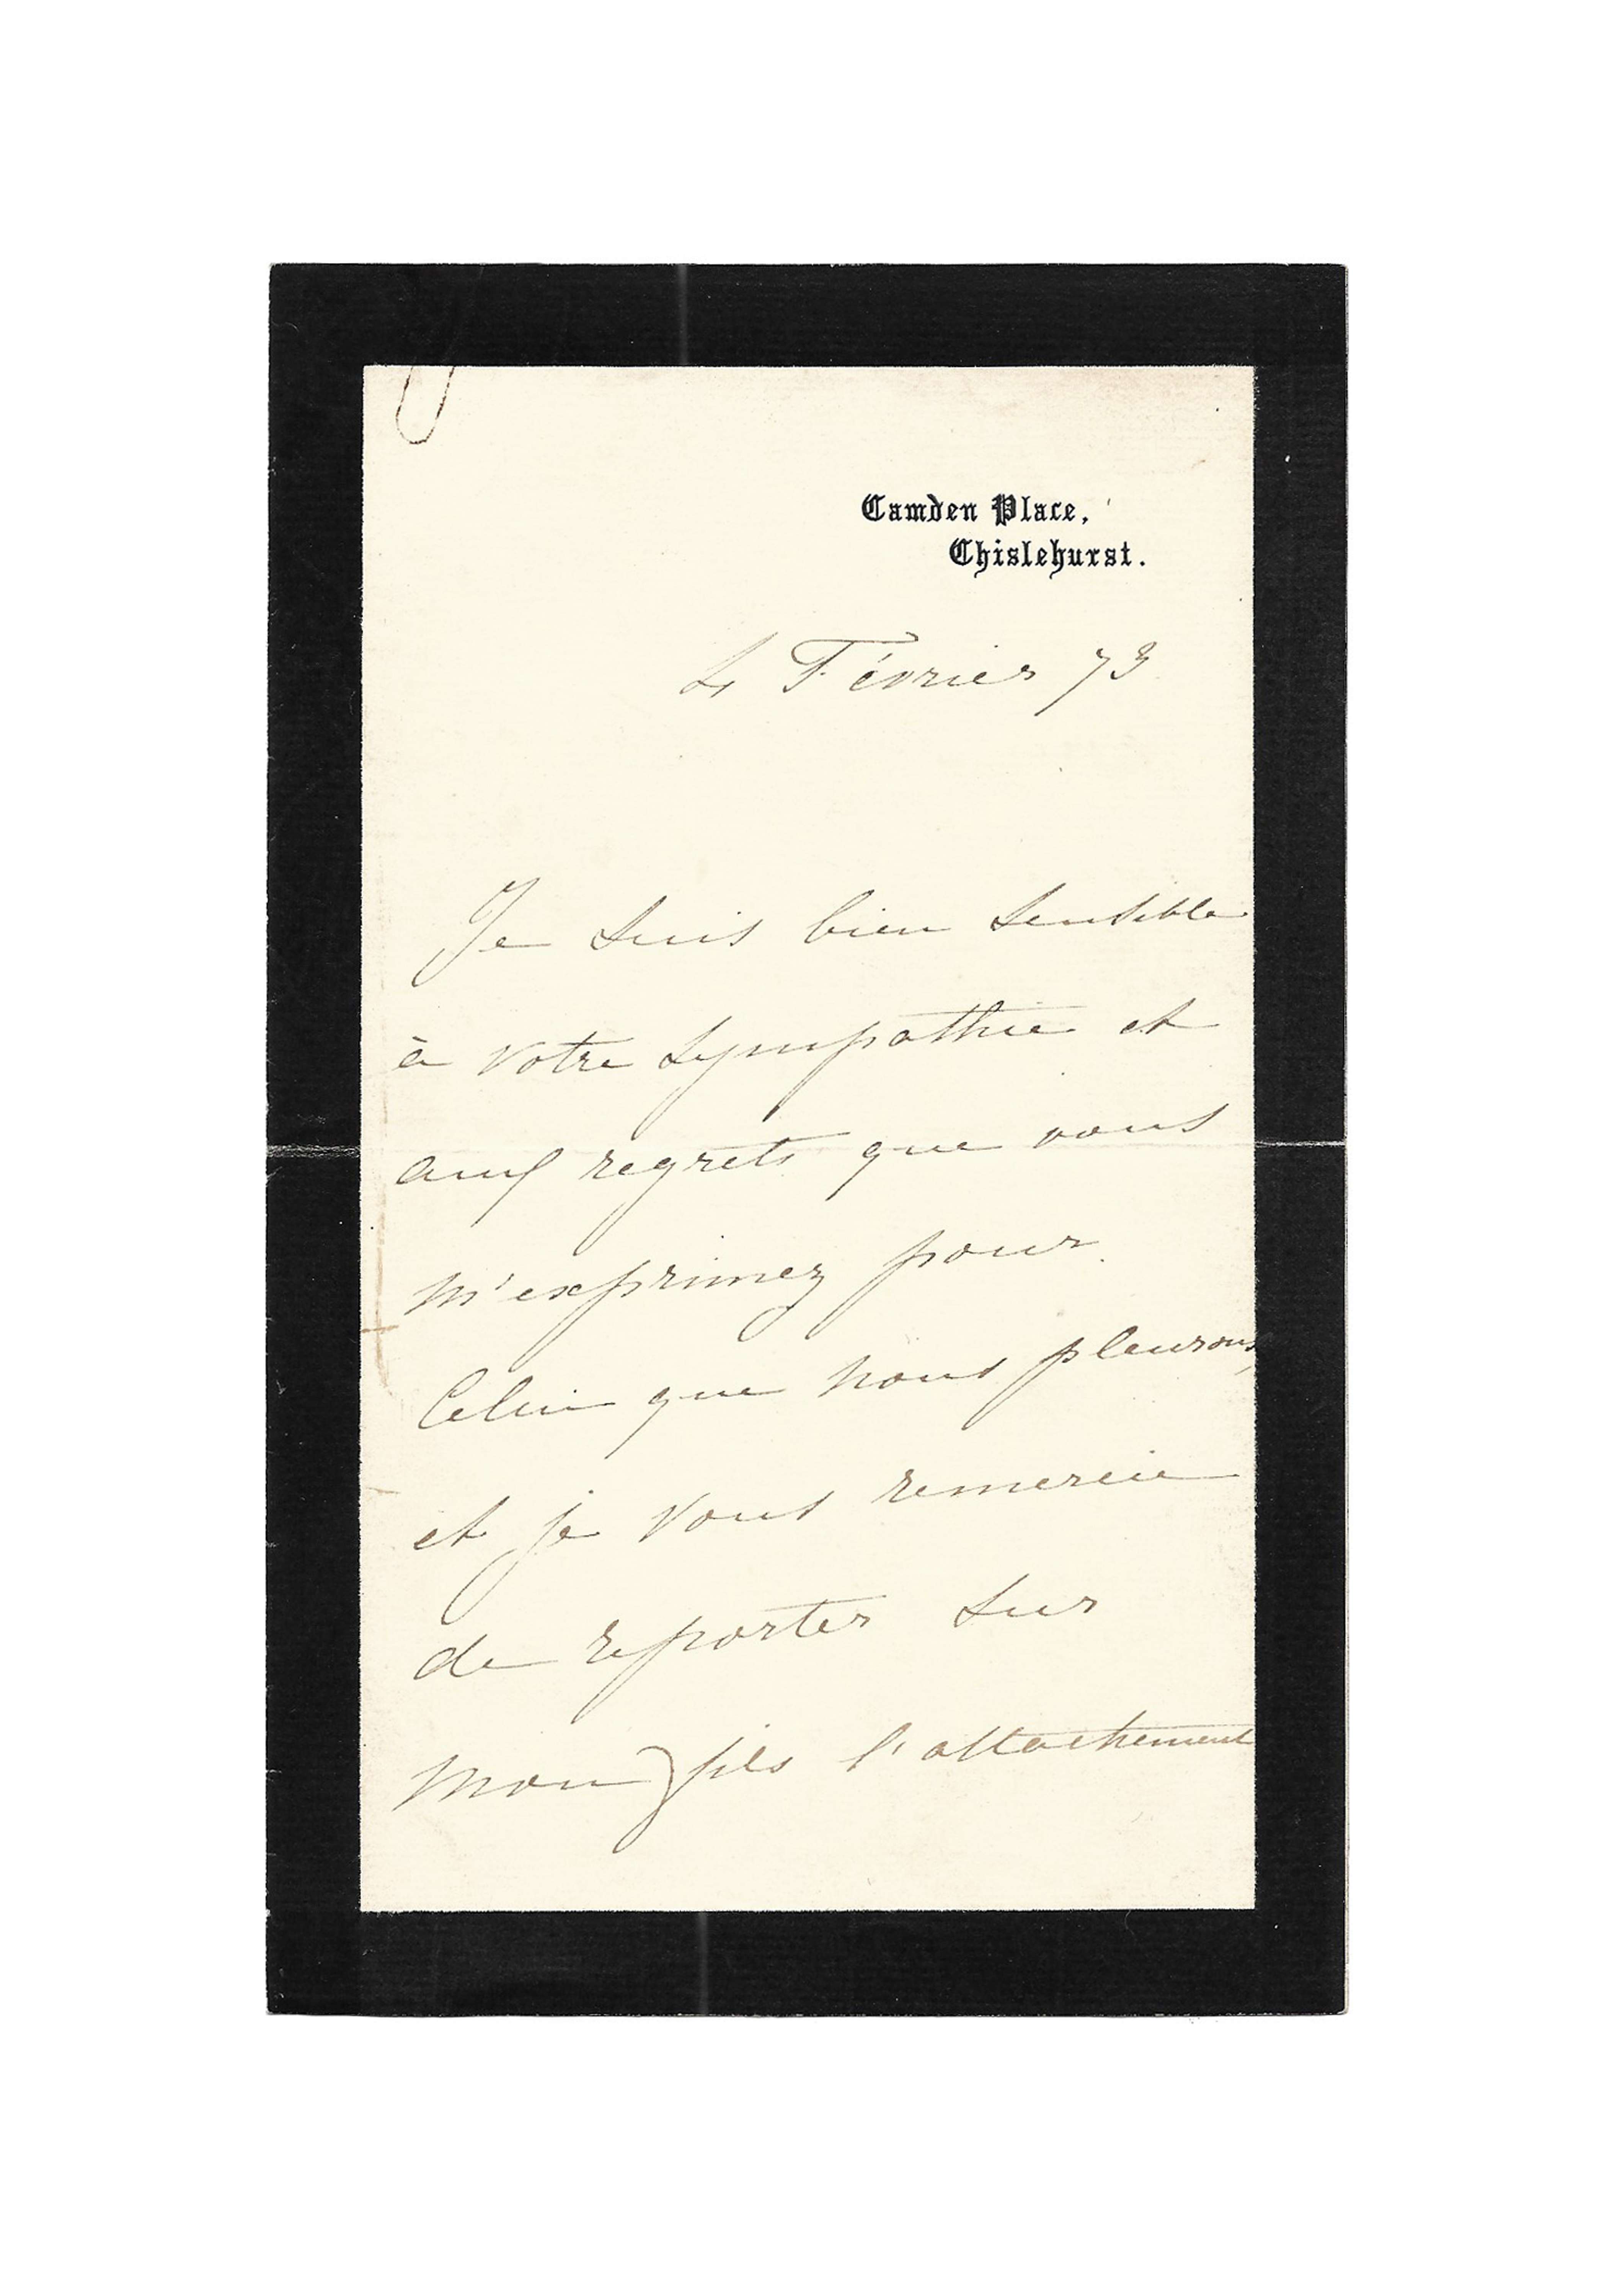 Camden Place,
Chislehurst.
4 Février 73
Je suis bien sensible
à votre sympathie et
aux regrets que vous
m'exprimez pour
Celui que nous pleurons,
et je vous remercie
de reporter sur
mon fils l'attachement